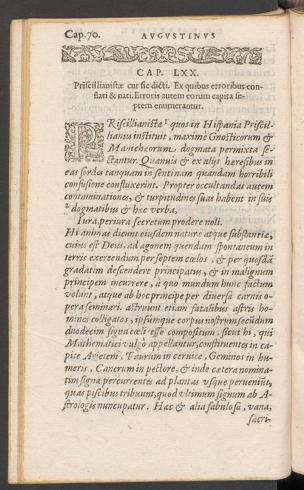 Cap. 70. AVGVSTINVS
CAP. LXX.
Priscillianistæ cur sic dicti. Ex quibus erroribus con-
flati & nati. Erroris autem eorum capita se-
ptem enumerantur.
PRiscillianistæ quos in Hispania Priscil-
lianus instituit, maximè Gnosticorum &
Manichæorum dogmata permixta se-
ctantur. Quamuis & ex alijs hæresibus in
eas sordes tanquam in sentinam quandam horribili
confusione confluxerint. Propter occultandas autem
contaminationes, & turpitudines suas habent in suis
dogmatibus & hæc verba,
Iura periura secretum prodere noli.
Hi animas dicunt eiusdem naturæ atque substantiæ,
cuius est Deus, ad agonem quendam spontaneum in
terris exercendum per septem cœlos, & per quosdã
gradatim descendere principatus, & in malignum
principem incurrere, à quo mundum hunc factum
volunt, atque ab hoc principe per diuersa carnis o-
pera seminari. astruunt etiam fatalibus astris ho-
mines colligatos, ipsumque corpus nostrum secũdum
duodecim signa cœli esse compositum, sicut hi, qui
Mathematici vulgò appellantur, constituentes in ca-
pite Arietem, Taurum in ceruice, Geminos in hu-
meris, Cancrum in pectore, & inde cætera nomina-
tim signa percurrentes ad plantas vsque perueniũt,
quas piscibus tribuunt, quod vltimum signum ab A-
strologis nuncupatur. Hæc & alia fabulosa, vana,
sacri-